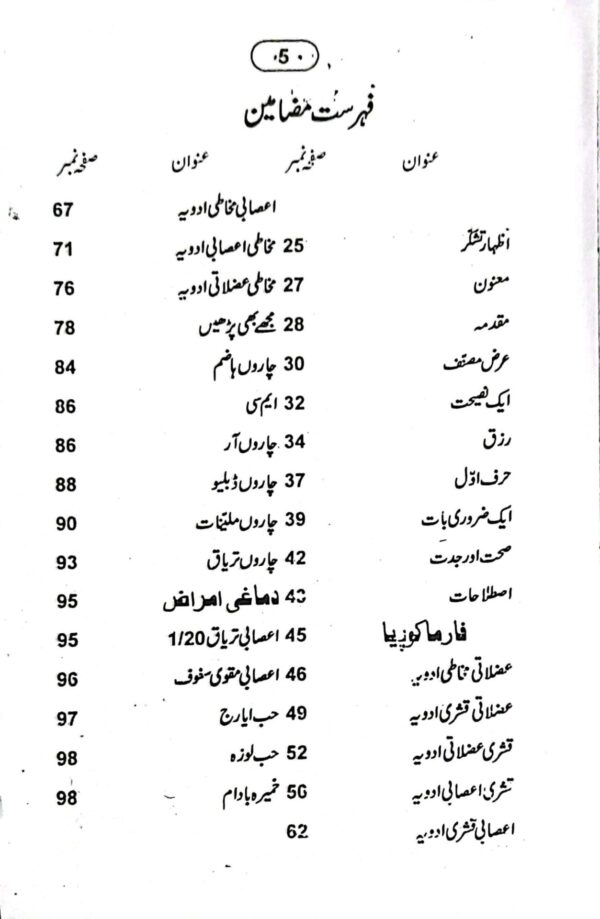 5
فہرست مضامین
عنوان صفحہ نمبر عنوان صفحہ نمبر
اعصابی مخاطی ادویہ 67
اظہار تشکّر 25 مخاطی اعصابی ادویہ 71
معنون 27 مخاطی عضلاتی ادویہ 76
مقدمہ 28 مجھے بھی پڑھیں 78
عرض مصنّف 30 چاروں ہاضم 84
ایک نصیحت 32 ایم سی 86
رزق 34 چاروں آر 86
حرف اوّل 37 چاروں ڈبلیو 88
ایک ضروری بات 39 چاروں ملیّنات 90
صحت اور جدت 42 چاروں تریاق 93
اصطلاحات 43 دماغی امراض 95
فارماکوپیا 45 اعصابی تریاق 1/20 95
عضلاتی مخاطی ادویہ 46 اعصابی مقوی سفوف 96
عضلاتی قشری ادویہ 49 حب ایارج 97
قشری عضلاتی ادویہ 52 حب لوزہ 98
قشری اعصابی ادویہ 56 خمیرہ بادام 98
اعصابی قشری ادویہ 62